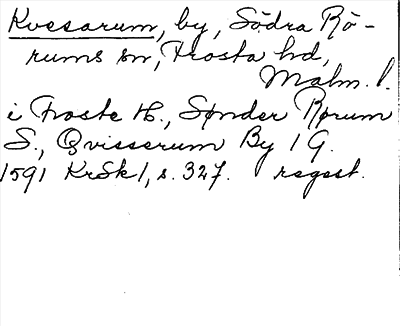 Kvesarum, by, Södra Rö-
rums sn, Frosta hd,
Malm. l.
i Froste H., Sønder Rørum
S., Qvisserum By 1 G.
1591 KrSk 1, s. 327. regest.